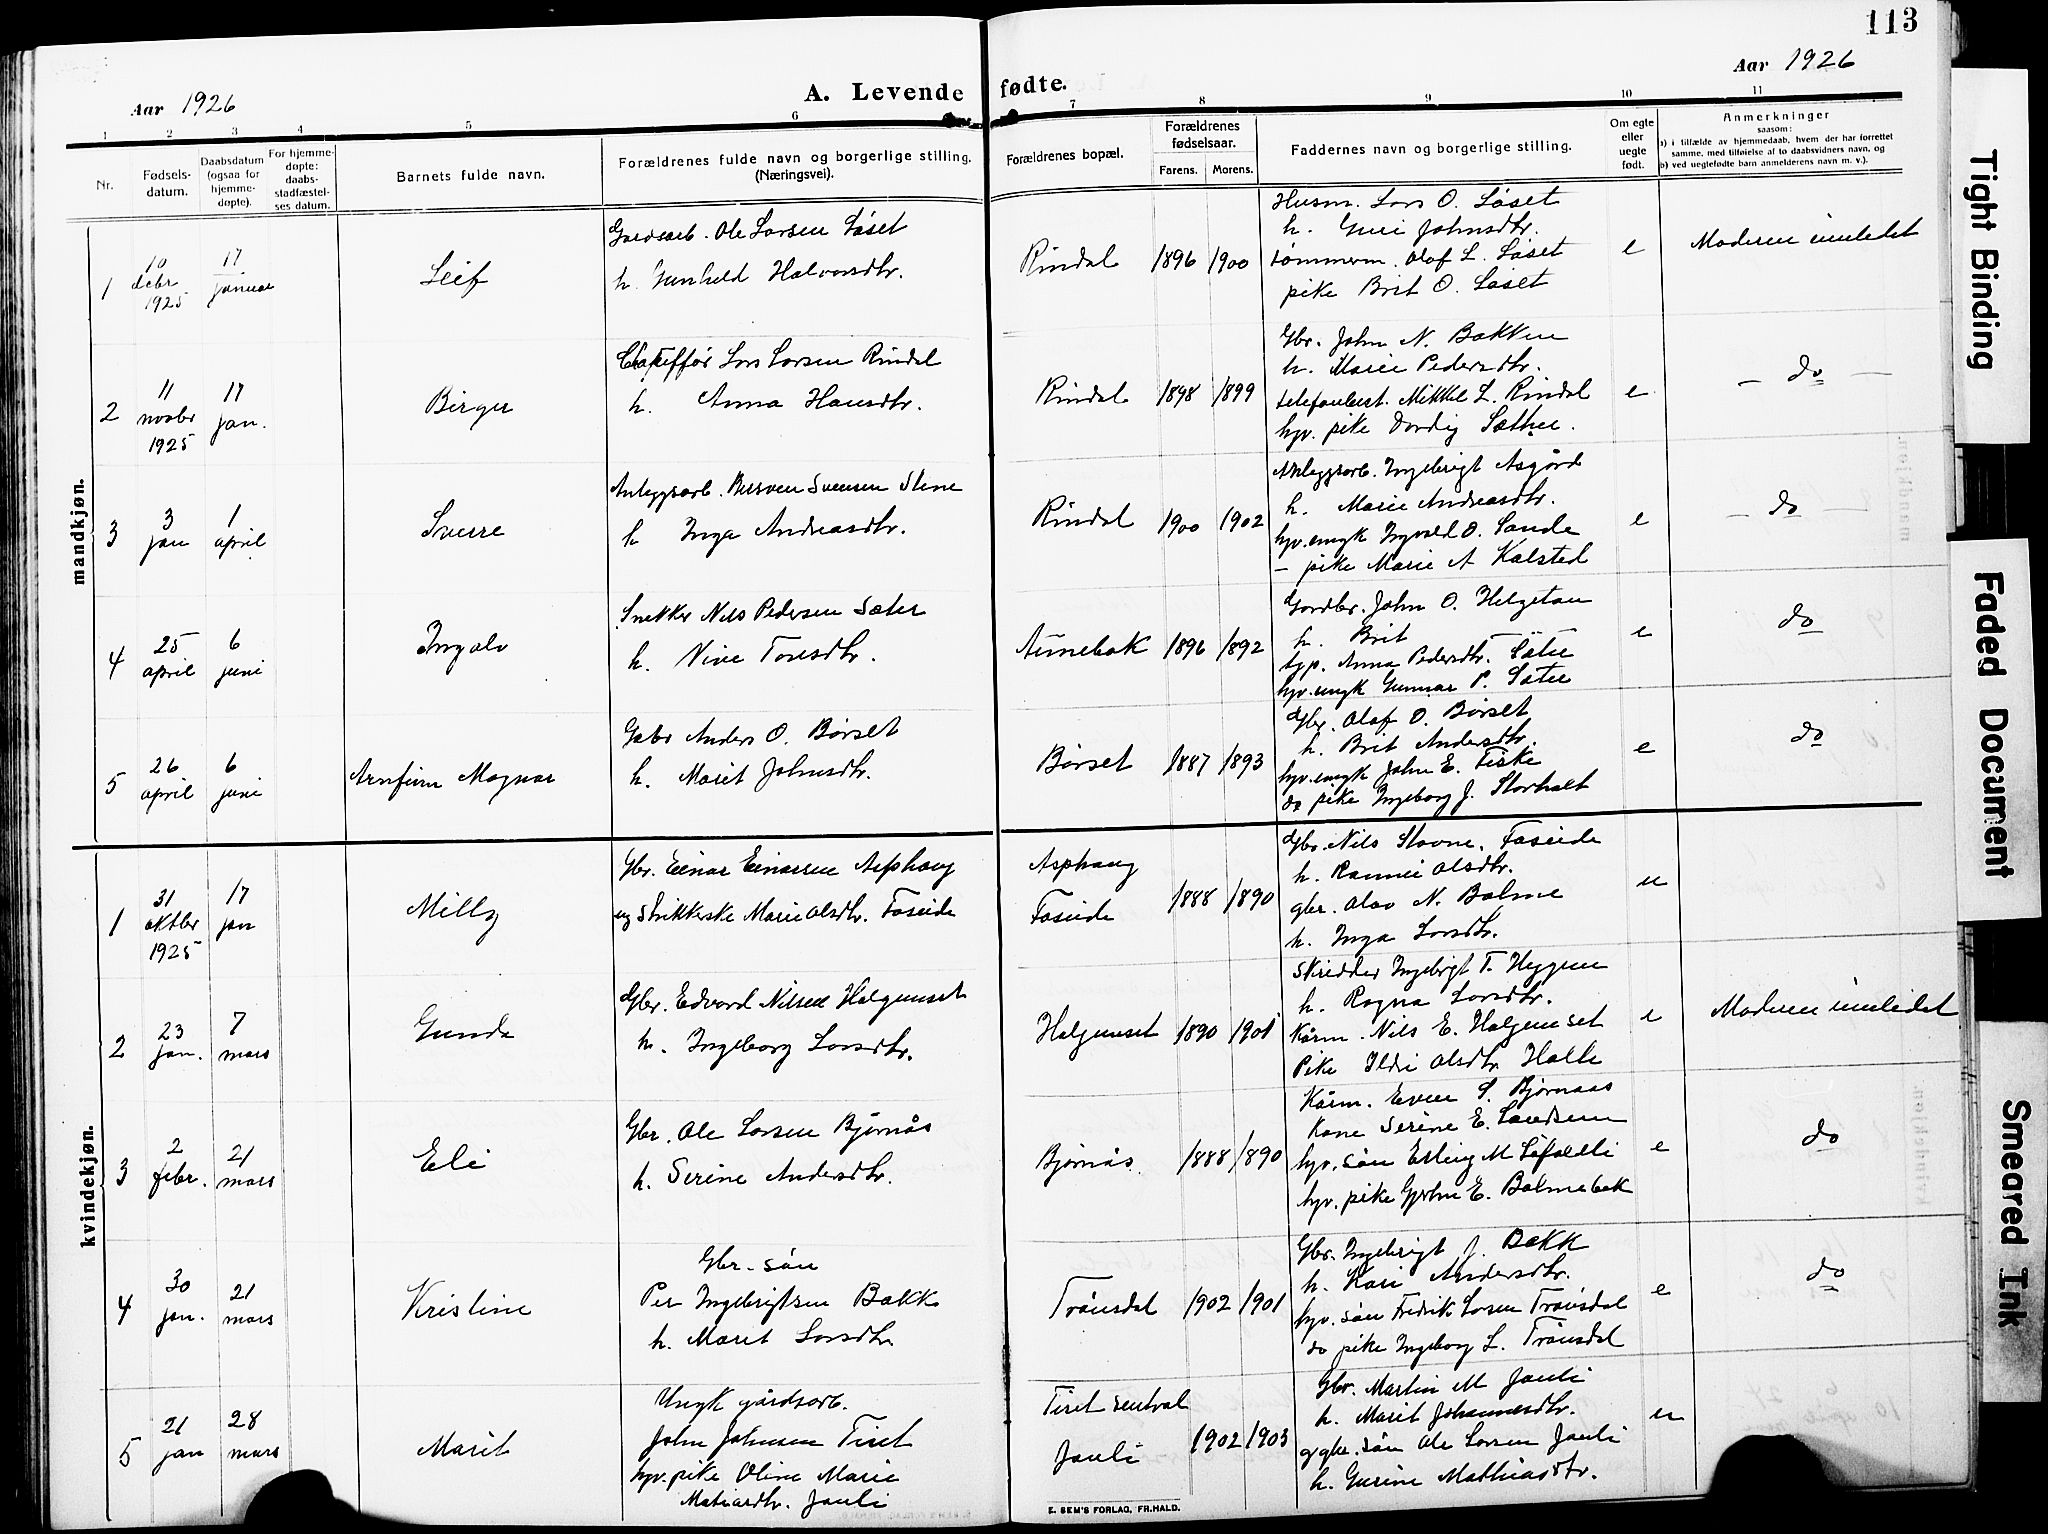 113
Aar 1926
Aar 1926
A. Levende fødte.
1 2 3 4 5 6 7 8 9 10 11
Nr.
Fødsels-
datum.
Daabsdatum
(ogsaa for
hjemme-
døpte).
For hjemme-
døpte:
daabs-
stadfæstel-
ses datum.
Barnets fulde navn.
Forældrenes fulde navn og borgerlige stilling.
(Næringsvei).
Forældrenes bopæl.
Forældrenes
fødselsaar.
Farens. Morens.
Faddernes navn og borgerlige stilling.
Om egte
eller
uegte
født.
Anmerkninger
saasom:
a) i tilfælde av hjemmedaab, hvem der har forrettet
samme, med tilføielse af to daabsvidners navn, og
b) ved uegtefødte barn anmelderens navn m. v.).
mandkjøn.
1
10 debr 1925
17 januar
Leif
Gardsarb. Ole Larsen Løset
h. Gunhild Halvorsdtr.
Rindal 1896 1900
Husm. Lars O. Løset
h. Guri Johnsdtr.
tømmerm. Olaf L. Løset
pike Brit O. Løset
e
Moderen innledet
2
11 novbr 1925
17 jan.
Birger
Lars Larsen Rindal
h. Anna Hansdtr.
Rindal 1898 1899
Gbr. John N. Bakken
h. Marie Pedersdtr.
telefonbest. Mikkel L. Rindal
hjv. pike Dordig Sæther.
e
— do —
3
3 jan
1 april
Sverre
Anleggsarb. Bersven Svensen Stene
h Inga Andreasdtr.
Rindal 1900 1902
Anleggsarb. Ingebrigt Åsgård
h. Marie Andreasdtr.
hjv. ungk Ingvald O. Sande
— pike Marie A Kalsted
e
— do —
4
25 april
6 juni
Ingolv
Snekker Nils Pedersen Sæter
h. Nive Toresdtr.
Aunebak 1896 1892
Gardbr. John O. Helgetun
h. Brit
Anna Pedersdtr. Sæter
hjv. ungk Gunnar P. Sæter
e
do
5
26 april
6 juni
Arnfinn Magnar
Gabr Anders O. Børset
h. Marit Johnsdtr.
Børset 1887 1893
Gbr. Olaf O. Børset
h. Brit Andersdtr.
hjv. ungk John E. Fiske
do pike Ingeborg J. Storholt
e
do
kvindekjøn.
1
31 oktbr 1925
17 jan
Milly
Gbr. Einar Einarsen Asphaug
og Strikkerske Marie Olsdtr. Faseide
Asphaug
Faseide
1888 1890
Gbr. Nils Stavne, Faseide
h. Rannei Olsdtr.
gbr. Olav N. Bolme
h. Inga Larsdtr.
u
2
23 jan.
7 mars
Gunda
Gbr. Edvard Nilsen Halgunset
h. Ingeborg Larsdtr.
Halgunset 1890 1901
Skredder Ingebrigt T. Heggem
h. Ragna Larsdtr.
Kårm. Nils E. Halgunset
Pike Ildri Olsdtr. Halle
e
Moderen innledet
3
2 febr.
21 mars
Eli
Gbr. Ole Larsen Bjørnås
h. Serine Andersdtr.
Bjørnås 1888 1890
Kårm. Even S. Bjørnaas
Kone Serine E. Landsem
hjv. søn Erling M Løfaldli
hjv. pike Gjertine E. Bolmebak
e
do
4
30 jan.
21 mars
Kristine
Gbr. søn
Per Ingebrigtsen Bakk
h. Marit Larsdtr.
Trønsdal 1902 1901
Gbr. Ingebrigt J. Bakk
h. Kari Andersdtr.
hjv. søn Fredrik Larsen Trønsdal
do pike Ingeborg L. Trønsdal
e
do
5
21 jan
28 mars
Marit
Ungk gårdsarb.
John Johnsen Tiset
hjv. pike Oline Marie
Matiasdtr. Jauli
Tiset sentral
Jauli
1902 1903
Gbr. Martin M Jauli
h. Marit Johannesdtr.
gbr. søn Ole Larsen Jauli
h. Gurine Mathiasdtr.
u
E. SEM'S FORLAG, FR.HALD.
Tight Binding
Faded Document
Smeared Ink